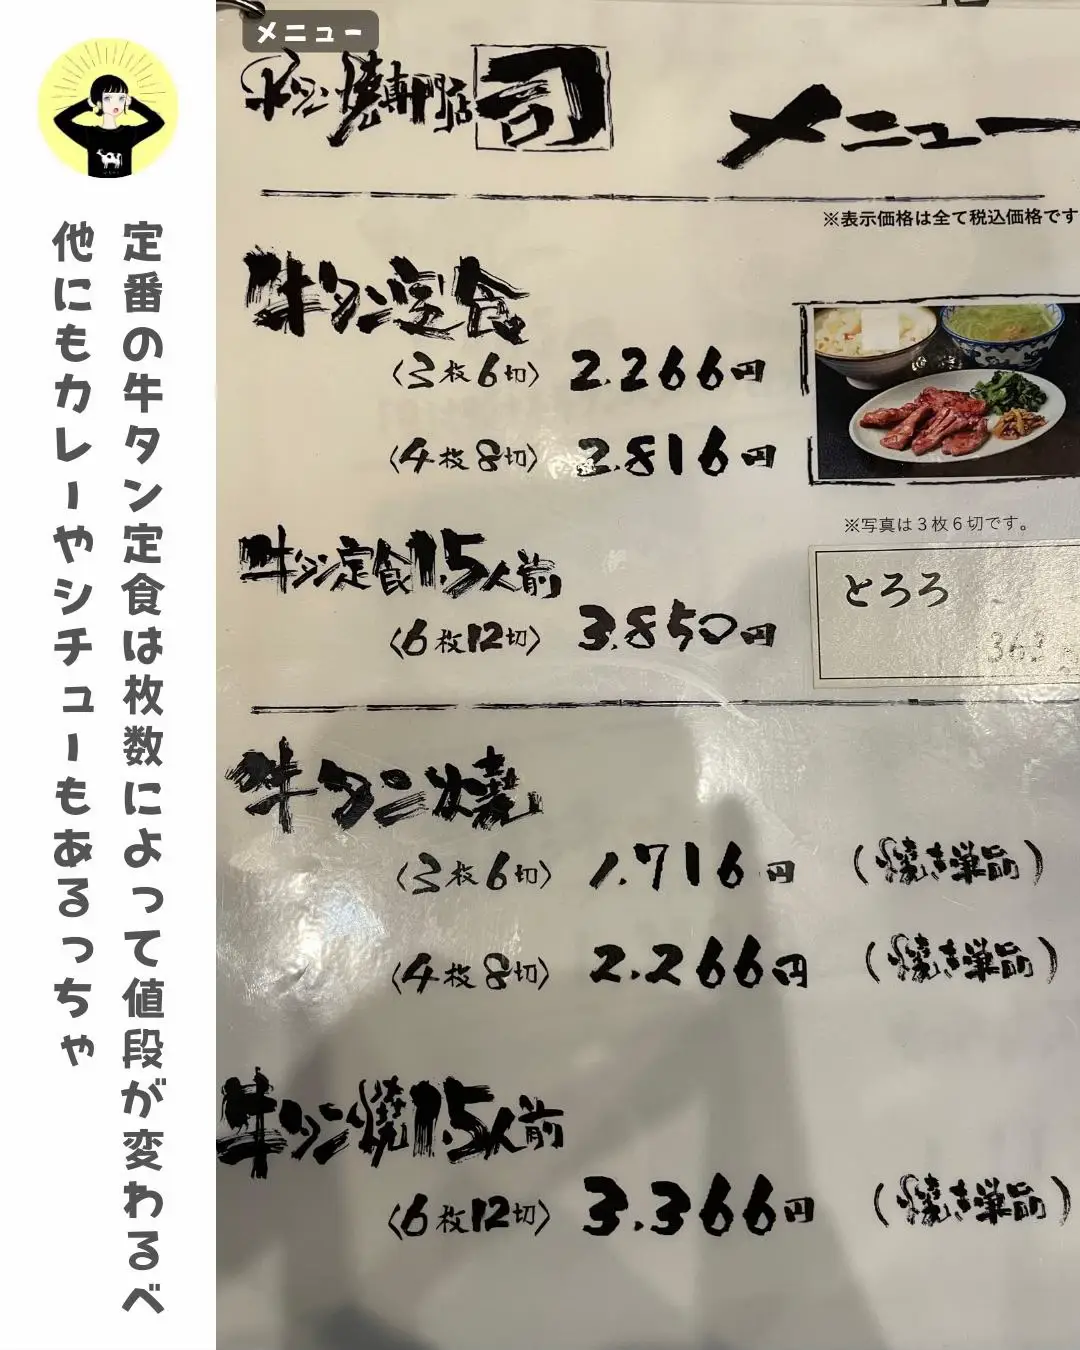 メニュー
牛タン焼専門店 司
メニュー
※表示価格は全て税込価格です
牛タン定食
〈3枚6切〉 2.266円
〈4枚8切〉 2.816円
※写真は3枚6切です。
牛タン定食1.5人前
〈6枚12切〉 3.850円
とろろ
363
牛タン焼
〈3枚6切〉 1.716円 (焼き単品)
〈4枚8切〉 2.266円 (焼き単品)
牛タン焼1.5人前
〈6枚12切〉 3.366円 (焼き単品)
定番の牛タン定食は枚数によって値段が変わるべ
他にもカレーやシチューもあるっちゃ